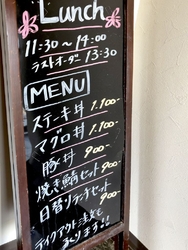 Lunch
11:30～14:00
ラストオーダー 13:30
MENU
ステーキ丼 1.100-
マグロ丼 1.100-
豚丼 900-
焼き鯖セット 900-
日替りランチセット 900-
テイクアウト注文も
あります!!